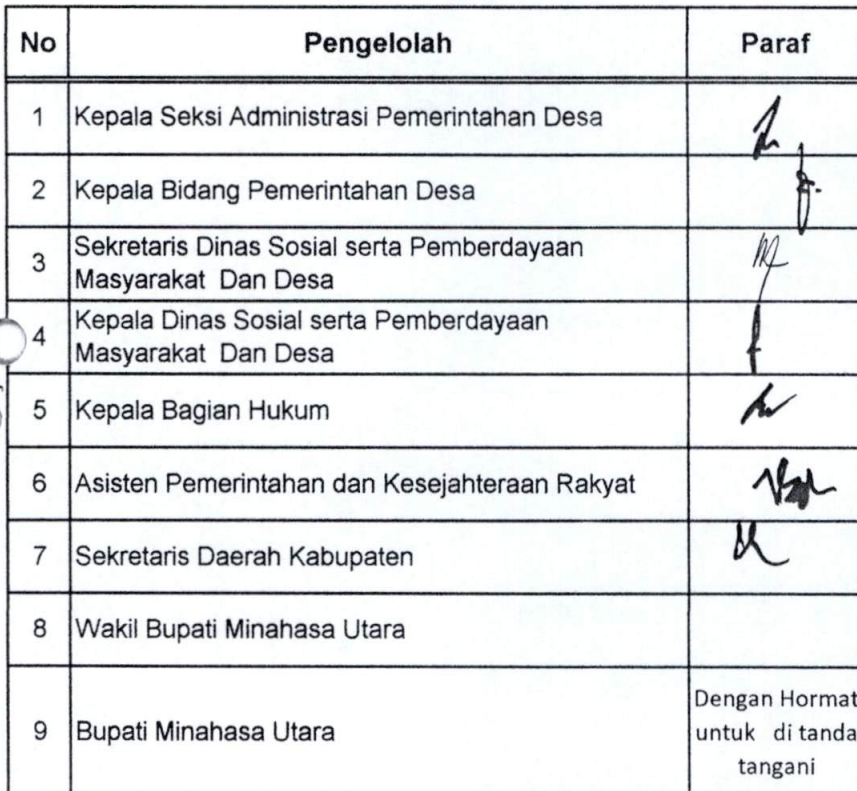 No Pengelolah Paraf
1 Kepala Seksi Administrasi Pemerintahan Desa
2 Kepala Bidang Pemerintahan Desa
3 Sekretaris Dinas Sosial serta Pemberdayaan
Masyarakat Dan Desa
4 Kepala Dinas Sosial serta Pemberdayaan
Masyarakat Dan Desa
5 Kepala Bagian Hukum
6 Asisten Pemerintahan dan Kesejahteraan Rakyat
7 Sekretaris Daerah Kabupaten
8 Wakil Bupati Minahasa Utara
9 Bupati Minahasa Utara
Dengan Hormat
untuk di tanda
tangani